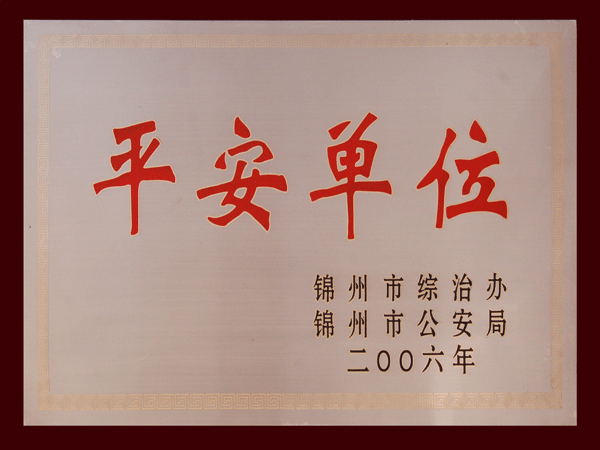 平安单位
锦州市综治办
锦州市公安局
二〇〇六年